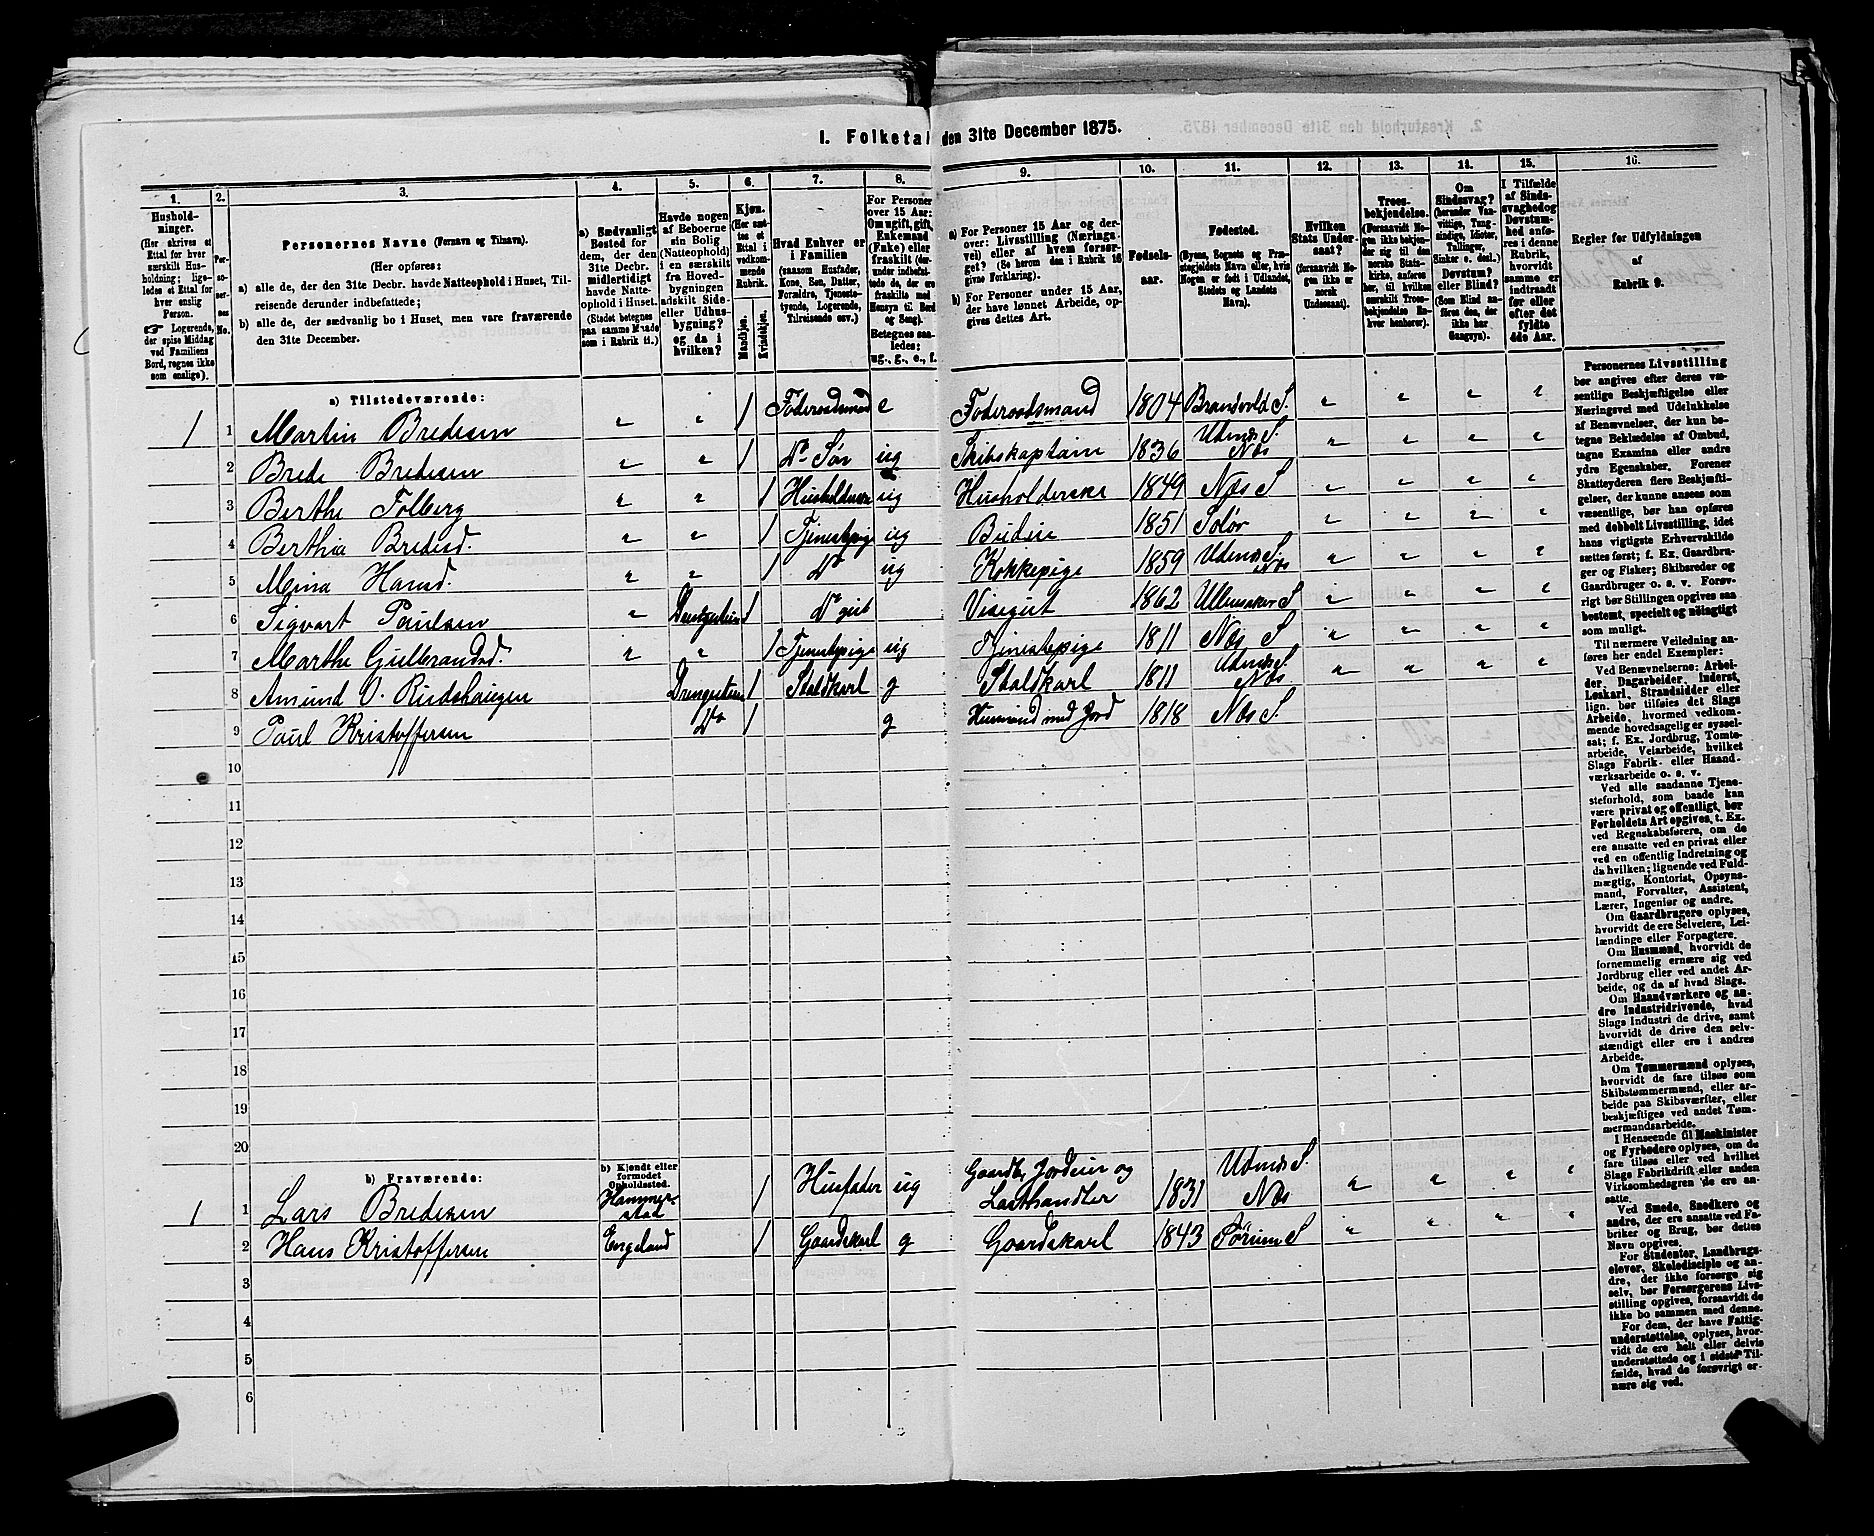 I. Folketal den 31te December 1875.
1. 2. 3. 4. 5. 6. 7. 8. 9. 10. 11. 12. 13. 14. 15. 16.
Hushold-
ninger.
(Her skrives et
Ettal for hver
særskilt Hus-
holdning; lige-
ledes et Ettal for
hver enslig
Person.
☞ Logerende,
der spise Middag
ved Familiens
Bord, regnes ikke
som enslige).
Per-
so-
ner-
nes
No.
Personernes Navne (Fornavn og Tilnavn).
(Her opføres:
a) alle de, der den 31te Decbr. havde Natteophold i Huset, Til-
reisende derunder indbefattede;
b) alle de, der sædvanlig bo i Huset, men vare fraværende
den 31te December.
a) Sædvanligt
Bosted for
dem, der den
31te Decbr.
midlertidigt
havde Natte-
ophold i Huset.
(Stedet betegnes
paa samme Maade
som i Rubrik 11.)
Havde nogen
af Beboerne
sin Bolig
(Natteophold)
i en særskilt
fra Hoved-
bygningen
adskilt Side-
eller Udhus-
bygning?
og da i
hvilken?
Kjøn.
(Her sæt-
tes et
Ettal i
vedkom-
mende
Rubrik.
Mandkjøn.
Kvindekjøn.
Hvad Enhver er
i Familien
(saasom Husfader,
Kone, Søn, Datter,
Forældre, Tjeneste-
tyende, Logerende,
Tilreisende osv.)
For Personer
over 15 Aar:
Om ugift, gift,
Enkemand
(Enke) eller
fraskilt (der-
under indbefat-
tede de, der ere
fraskilte med
Hensyn til Bord
og Seng).
Betegnes saa-
ledes:
ug., g., e., f.
a) For Personer 15 Aar og der-
over: Livsstilling (Næringsvei)
eller af hvem forsør-
get? (Se herom den i Rubrik 16
givne Forklaring).
b) For Personer under 15 Aar,
der have lønnet Arbeide, op-
gives dettes Art.
Fødsels-
aar.
Fødested.
(Byens, Sognets og Præ-
stegjeldets Navn eller, hvis
Nogen er født i Udlandet,
Stedets og Landets
Navn).
Hvilken
Stats Under-
saat?
(forsaavidt No-
gen ikke er
norsk
Undersaat).
Troes-
bekjendelse.
(Forsaavidt No-
gen ikke bekjen-
der sig til den
norske Stats-
kirke, anføres
her, til hvilken
særskilt Troes-
bekjendelse En-
hver henhører).
Om
Sindssvag?
(herunder Van-
vittige, Tung-
sindige, Idioter,
Tullinger,
Sinker o. desl.)
Døvstum?
eller Blind?
(Som Blind an-
føres den, der
ikke har
Gangsyn).
I Tilfælde
af Sinds-
svaghed og
Døvstum-
hed anfø-
res i denne
Rubrik,
hvorvidt
samme er
indtraadt
før eller
efter det
fyldte
4de Aar.
Regler for Udfyldningen
af
Rubrik 9.
a) Tilstedeværende:
1 1 Martin Bredesen " " 1 Føderaadsmand e Føderaadsmand 1804 Brandvold S. " " " "
2 Brede Bredesen " " 1 Do Søn ug Skibskaptain 1836 Udenæs S. Næs " " " "
3 Berthe Folberg " " 1 Husholderske ug Husholderske 1849 Næs S " " " "
4 Berthia Bredesd. " " 1 Tjenestepige ug Budeie 1851 Solør " " " "
5 Mina Hansd. " " 1 Do ug Kokkepige 1859 Udenæs S. Næs " " " "
6 Sigvart Paulsen " Drengestuen 1 Do gut Visegut 1862 Ullensaker S " " " "
7 Marthe Gulbrandsd. " " 1 Tjenestepige ug Tjenestepige 1811 Næs S " " " "
8 Amund O. Rudshaugen Drengestuen 1 Staldkarl g Staldkarl 1811 Udenæs S. Næs " " " "
9 Paul Kristoffersen Do 1 g Husmand med Jord 1818 Næs S.
10
11
12
13
14
15
16
17
18
19
20
b) Fraværende:
b) Kjendt eller
formodet
Opholdssted.
1 1 Lars Bredesen Hammerstad 1 Husfader ug Gaardbr. Jordeier og Lasthandler 1831 Udenæs S. Næs " " " "
2 Hans Kristoffersen Engeland 1 Gaardskarl g Gaardskarl 1843 Sørum S " " " "
3
4
5
6
Personernes Livsstilling
bør angives efter deres væ-
sentlige Beskjæftigelse eller
Næringsvei med Udelukkelse
af Benævnelser, der kun be-
tegne Beklædelse af Ombud,
tagne Examina eller andre
ydre Egenskaber. Forener
Skatteyderen flere Beskjæfti-
gelser, der kunne ansees som
væsentlige, bør han opføres
med dobbelt Livsstilling, idet
hans vigtigste Erhvervskilde
sættes først; f. Ex. Gaardbru-
ger og Fisker; Skibsreder og
Gaardbruger o. s. v. Forøv-
rigt bør Stillingen opgives saa
bestemt, specielt og nøiagtigt
som muligt.
Til nærmere Veiledning an-
føres her endel Exempler:
Ved Benævnelserne: Arbei-
der, Dagarbeider, Inderst,
Løskarl, Strandsidder eller
lign. bør tilføies det Slags
Arbeide, hvormed vedkom-
mende hovedsagelig er syssel-
sat; f. Ex. Jordbrug, Tomte-
arbeide, Veiarbeide, hvilket
Slags Fabrik- eller Haand-
værksarbeide o. s. v.
Ved alle saadanne Tjene-
steforhold, som baade kan
være privat og offentligt, bør
Forholdets Art opgives, t. Ex.
ved Regnskabsførere, om de
ere ansatte ved en privat eller
ved en offentlig Indretning og
da hvilken; lignende ved Fuld-
mægtig, Kontorist, Opsyns-
mand, Forvalter, Assistent,
Lærer, Ingeniør og andre.
Om Gaardbrugere oplyses,
hvorvidt de ere Selveiere, Lei-
lændinge eller Forpagtere.
Om Husmænd, hvorvidt de
fornemmelig ernære sig ved
Jordbrug eller ved andet Ar-
beide, og da af hvad Slags.
Om Haandværkere og an-
dre Industridrivende, hvad
Slags Industri de drive, samt
hvorvidt de drive den selv-
stændigt eller ere i andres
Arbeide.
Om Tømmermænd oplyses,
hvorvidt de fare tilsøs som
Skibstømmermænd, eller ar-
beide paa Skibsværfter, eller
beskjæftiges ved andet Tøm-
mermandsarbeide.
I Henseende til Maskinister
og Fyrbødere oplyses, om de
fare tilsøs eller ved hvilket
Slags Fabrikdrift eller anden
Virksomhedsgren de ere an-
satte.
Ved Smede, Snedkere og
andre, der ere ansatte ved Fa-
briker og Brug, bør dettes
Navn opgives.
For Studenter, Landbrugs-
elever, Skoledisciple og an-
dre, der ikke forsørge sig
selv, bør Forsørgerens Livs-
stilling opgives, forsaavidt de
ikke bo sammen med denne.
For dem, der have Fattig-
understøttelse, oplyses, hvor-
vidt de ere helt eller delvis
understøttede og i sidste Til-
fælde, hvad de forøvrigt er-
nære sig ved.